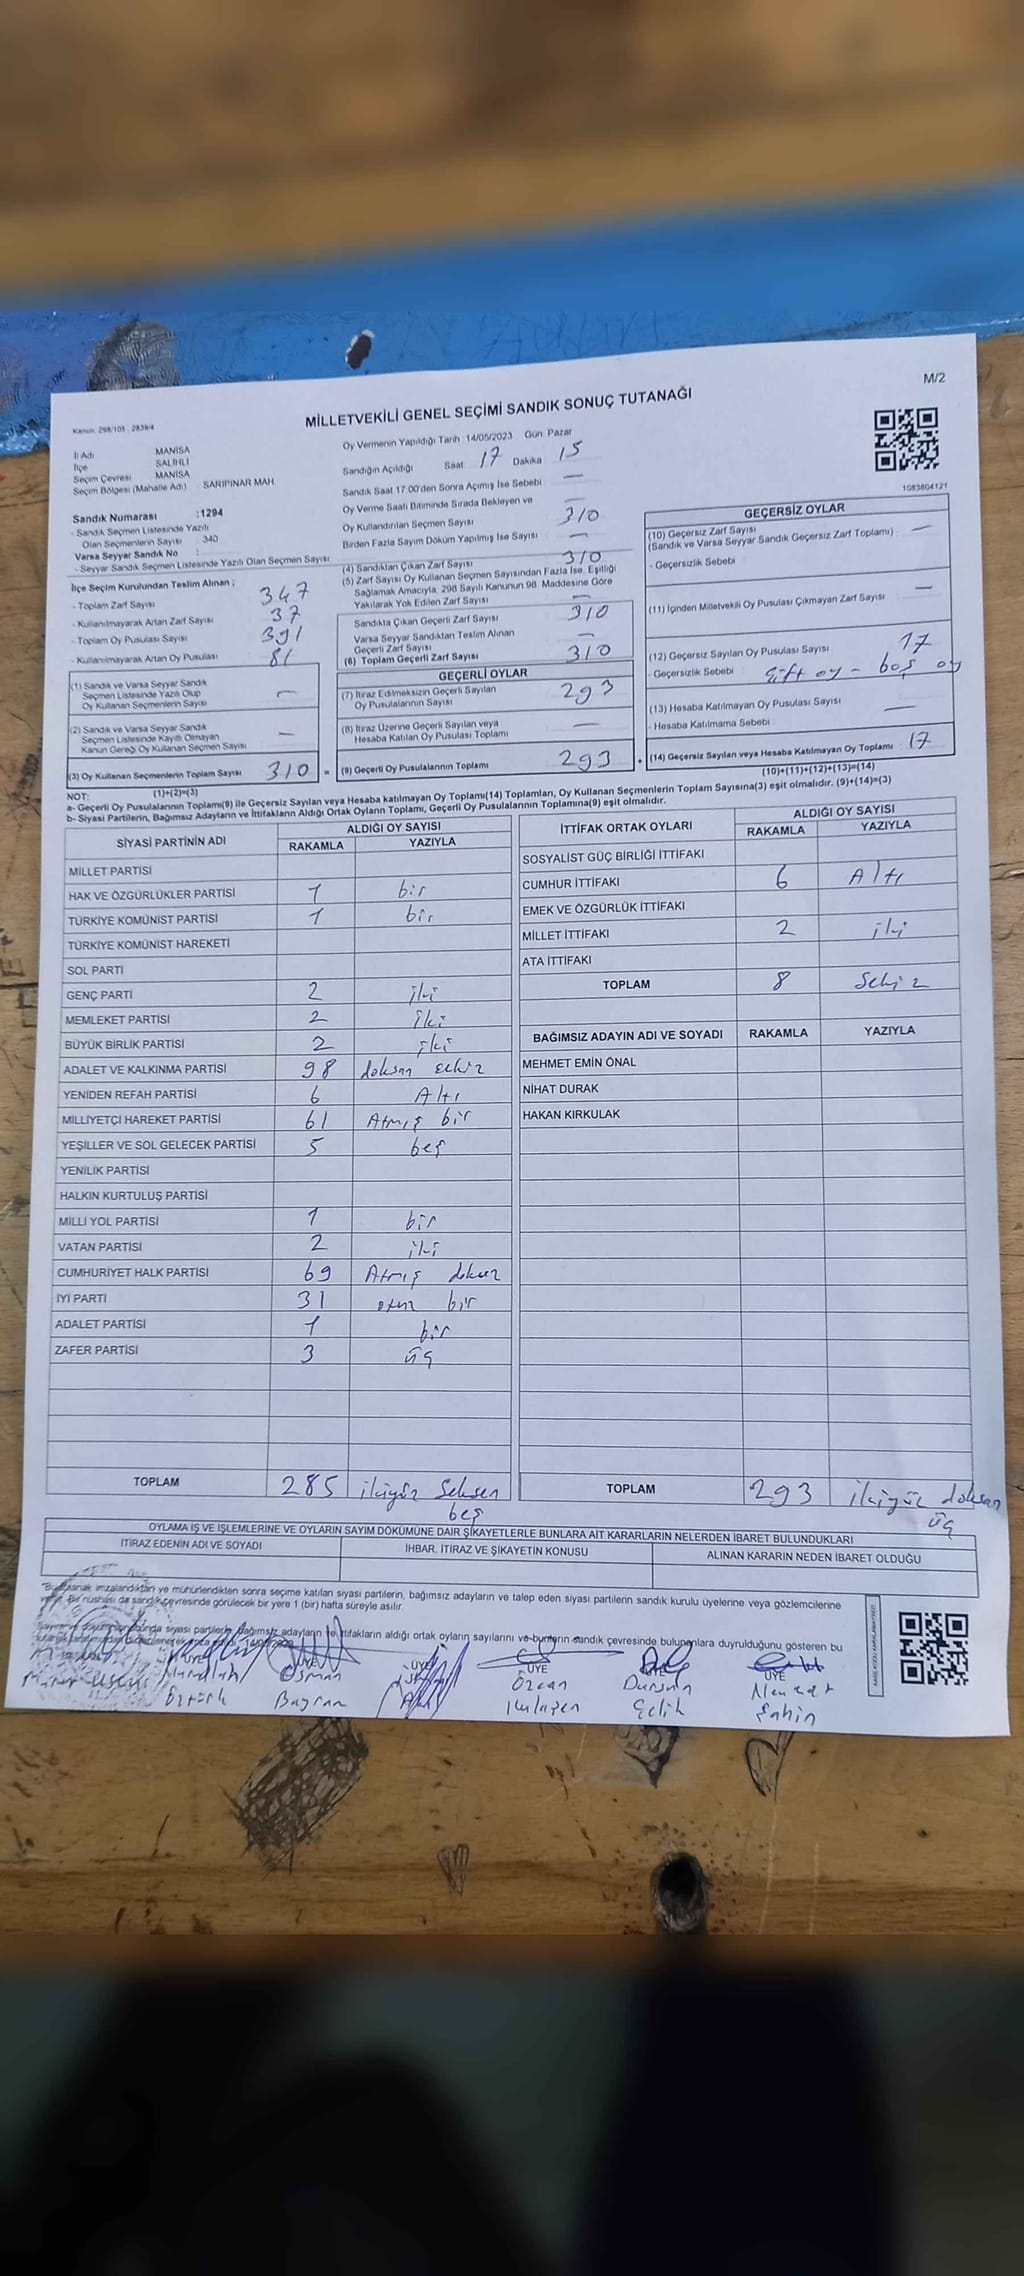 M/2
MİLLETVEKİLİ GENEL SEÇİMİ SANDIK SONUÇ TUTANAĞI
Kanun. 298/103 , 2839/4
İl Adı MANİSA
İlçe SALİHLİ
Seçim Çevresi MANİSA
Seçim Bölgesi (Mahalle Adı) SARIPINAR MAH.
Sandık Numarası :1294
- Sandık Seçmen Listesinde Yazılı
Olan Seçmenlerin Sayısı : 340
Varsa Seyyar Sandık No :
- Seyyar Sandık Seçmen Listesinde Yazılı Olan Seçmen Sayısı :
Oy Vermenin Yapıldığı Tarih : 14/05/2023 Gün: Pazar
Sandığın Açıldığı Saat 17 Dakika 15
Sandık Saat 17:00'den Sonra Açımış İse Sebebi : —
Oy Verme Saati Bitiminde Sırada Bekleyen ve —
Oy Kullandırılan Seçmen Sayısı 310
Birden Fazla Sayım Döküm Yapılmış İse Sayısı : —
1083604121
İlçe Seçim Kurulundan Teslim Alınan ;
- Toplam Zarf Sayısı 347
- Kullanılmayarak Artan Zarf Sayısı 37
- Toplam Oy Pusulası Sayısı 391
- Kullanılmayarak Artan Oy Pusulası 81
(1) Sandık ve Varsa Seyyar Sandık
Seçmen Listesinde Yazılı Olup
Oy Kullanan Seçmenlerin Sayısı —
(2) Sandık ve Varsa Seyyar Sandık
Seçmen Listesinde Kayıtlı Olmayan
Kanun Gereği Oy Kullanan Seçmen Sayısı —
(3) Oy Kullanan Seçmenlerin Toplam Sayısı 310 =
(1)+(2)=(3)
(4) Sandıktan Çıkan Zarf Sayısı 310
(5) Zarf Sayısı Oy Kullanan Seçmen Sayısından Fazla İse, Eşitliği
Sağlamak Amacıyla, 298 Sayılı Kanunun 98. Maddesine Göre
Yakılarak Yok Edilen Zarf Sayısı —
Sandıkta Çıkan Geçerli Zarf Sayısı 310
Varsa Seyyar Sandıktan Teslim Alınan
Geçerli Zarf Sayısı —
(6) Toplam Geçerli Zarf Sayısı 310
GEÇERLİ OYLAR
(7) İtiraz Edilmeksizin Geçerli Sayılan
Oy Pusulalarının Sayısı 293
(8) İtiraz Üzerine Geçerli Sayılan veya
Hesaba Katılan Oy Pusulası Toplamı —
(9) Geçerli Oy Pusulalarının Toplamı 293 +
GEÇERSİZ OYLAR
(10) Geçersiz Zarf Sayısı
(Sandık ve Varsa Seyyar Sandık Geçersiz Zarf Toplamı) —
- Geçersizlik Sebebi :
(11) İçinden Milletvekili Oy Pusulası Çıkmayan Zarf Sayısı —
(12) Geçersiz Sayılan Oy Pusulası Sayısı 17
- Geçersizlik Sebebi : Çift oy - boş oy
(13) Hesaba Katılmayan Oy Pusulası Sayısı —
- Hesaba Katılmama Sebebi :
(14) Geçersiz Sayılan veya Hesaba Katılmayan Oy Toplamı 17
(10)+(11)+(12)+(13)=(14)
NOT:
a- Geçerli Oy Pusulalarının Toplamı(9) ile Geçersiz Sayılan veya Hesaba katılmayan Oy Toplamı(14) Toplamları, Oy Kullanan Seçmenlerin Toplam Sayısına(3) eşit olmalıdır. (9)+(14)=(3)
b- Siyasi Partilerin, Bağımsız Adayların ve İttifakların Aldığı Ortak Oyların Toplamı, Geçerli Oy Pusulalarının Toplamına(9) eşit olmalıdır.
SİYASİ PARTİNİN ADI ALDIĞI OY SAYISI
RAKAMLA YAZIYLA
MİLLET PARTİSİ
HAK VE ÖZGÜRLÜKLER PARTİSİ 1 bir
TÜRKİYE KOMÜNİST PARTİSİ 1 bir
TÜRKİYE KOMÜNİST HAREKETİ
SOL PARTİ
GENÇ PARTİ 2 iki
MEMLEKET PARTİSİ 2 iki
BÜYÜK BİRLİK PARTİSİ 2 iki
ADALET VE KALKINMA PARTİSİ 98 doksan sekiz
YENİDEN REFAH PARTİSİ 6 Altı
MİLLİYETÇİ HAREKET PARTİSİ 61 Atmış bir
YEŞİLLER VE SOL GELECEK PARTİSİ 5 beş
YENİLİK PARTİSİ
HALKIN KURTULUŞ PARTİSİ
MİLLİ YOL PARTİSİ 1 bir
VATAN PARTİSİ 2 iki
CUMHURİYET HALK PARTİSİ 69 Atmış dokuz
İYİ PARTİ 31 otuz bir
ADALET PARTİSİ 1 bir
ZAFER PARTİSİ 3 üç
TOPLAM 285 ikiyüz Seksen
beş
İTTİFAK ORTAK OYLARI ALDIĞI OY SAYISI
RAKAMLA YAZIYLA
SOSYALİST GÜÇ BİRLİĞİ İTTİFAKI
CUMHUR İTTİFAKI 6 Altı
EMEK VE ÖZGÜRLÜK İTTİFAKI
MİLLET İTTİFAKI 2 iki
ATA İTTİFAKI
TOPLAM 8 Sekiz
BAĞIMSIZ ADAYIN ADI VE SOYADI RAKAMLA YAZIYLA
MEHMET EMİN ÖNAL
NİHAT DURAK
HAKAN KIRKULAK
TOPLAM 293 ikiyüz doksan
üç
OYLAMA İŞ VE İŞLEMLERİNE VE OYLARIN SAYIM DÖKÜMÜNE DAİR ŞİKAYETLERLE BUNLARA AİT KARARLARIN NELERDEN İBARET BULUNDUKLARI
İTİRAZ EDENİN ADI VE SOYADI İHBAR, İTİRAZ VE ŞİKAYETİN KONUSU ALINAN KARARIN NEDEN İBARET OLDUĞU
imzalandıktan ve mühürlendikten sonra seçime katılan siyasi partilerin, bağımsız adayların ve talep eden siyasi partilerin sandık kurulu üyelerine veya gözlemcilerine
Bir nüshası da sandık çevresinde görülecek bir yere 1 (bir) hafta süreyle asılır.
siyasi partilerin, bağımsız adayların ve ittifakların aldığı ortak oyların sayılarını ve bunların sandık çevresinde bulunanlara duyrulduğunu gösteren bu
ÜYE ÜYE ÜYE ÜYE ÜYE
Öztürk
Osman
Bayram
Özcan
Dursun
Çelik
Şahin